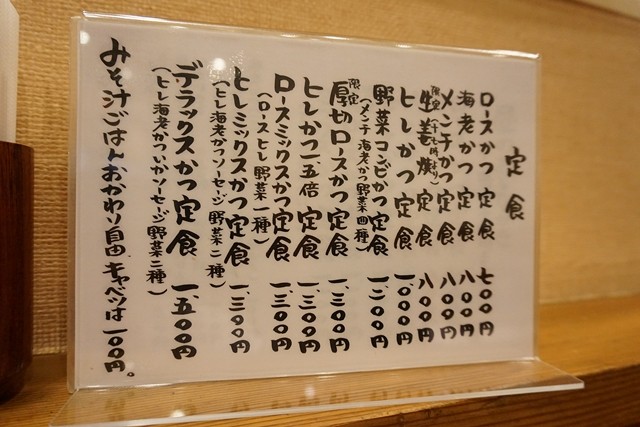 定食
ロースかつ定食 七〇〇円
海老かつ定食 八〇〇円
メンチかつ定食 八〇〇円
限定 生姜焼定食 八〇〇円
ヒレかつ定食 一、〇〇〇円
野菜コンビかつ定食 一、二〇〇円
(メンチ 海老かつ 野菜四種)
限定 厚切ロースかつ定食 一、三〇〇円
ヒレかつ一、五倍定食 一、三〇〇円
ロースミックスかつ定食 一、三〇〇円
(ロース ヒレ 野菜一種)
ヒレミックスかつ定食 一、三〇〇円
(ヒレ 海老かつ ソーセージ 野菜二種)
デラックスかつ定食 一、五〇〇円
(ヒレ 海老かつ いか ソーセージ 野菜二種)
みそ汁ごはんおかわり自由、キャベツは一〇〇円。